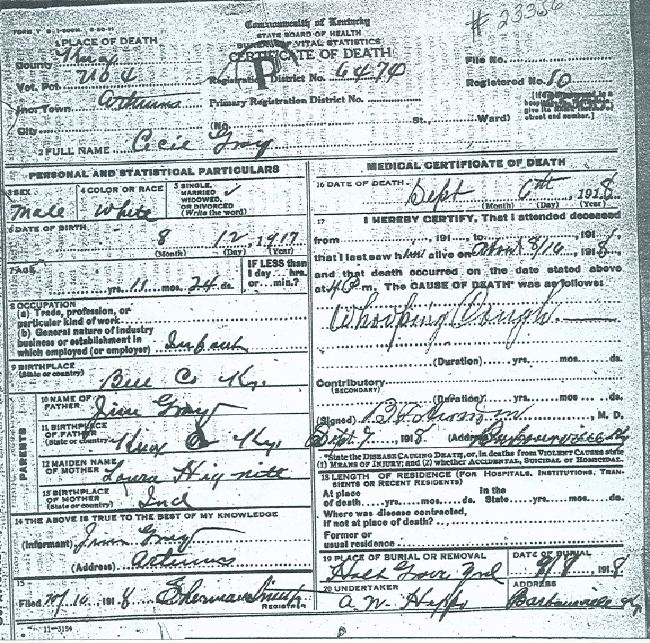 # 23356
Commonwealth of Kentucky
STATE BOARD OF HEALTH
BUREAU OF VITAL STATISTICS
CERTIFICATE OF DEATH
1 PLACE OF DEATH
County Knox
Vot. Pct. No 4
Registration District No. 6474
File No.
Registered No. 50
Inc. Town Artemus
Primary Registration District No.
City
(No. St., Ward)
street and number.]
2 FULL NAME Cecil Gray
PERSONAL AND STATISTICAL PARTICULARS
3 SEX
Male
4 COLOR OR RACE
White
5 SINGLE,
MARRIED
WIDOWED,
OR DIVORCED
(Write the word)
6 DATE OF BIRTH
8 12, 1917
(Month) (Day) (Year)
7 AGE
yrs. 11 mos. 24 ds.
IF LESS than
1 day ... hrs.
or ... min.?
8 OCCUPATION
(a) Trade, profession, or
particular kind of work
(b) General nature of industry
business or establishment in
which employed (or employer) Infant
9 BIRTHPLACE
(State or country) Bell Co Ky.
PARENTS
10 NAME OF
FATHER Jim Gray
11 BIRTHPLACE
OF FATHER
(State or country) Knox Co Ky.
12 MAIDEN NAME
OF MOTHER Laura Hignite
13 BIRTHPLACE
OF MOTHER
(State or country) Ind
14 THE ABOVE IS TRUE TO THE BEST OF MY KNOWLEDGE
(Informant) Jim Gray
(Address) Artemus
15
Filed 10, 1918 Sherman
REGISTRAR
11-3184
MEDICAL CERTIFICATE OF DEATH
16 DATE OF DEATH
Sept 6th, 1918
(Month) (Day) (Year)
17 I HEREBY CERTIFY, That I attended deceased
from , 191 , to , 191 ,
that I last saw him alive on about 8/16, 1918,
and that death occurred on the date stated above
at 4 P m. The CAUSE OF DEATH* was as follows:
Whooping Cough
(Duration) yrs. mos. ds.
Contributory
(SECONDARY)
(Duration) yrs. mos. ds.
(Signed) M. D.
Sept 9, 1918 (Address) Barbourville Ky
*State the DISEASE CAUSING DEATH, or, in deaths from VIOLENT CAUSES state
(1) MEANS OF INJURY; and (2) whether ACCIDENTAL, SUICIDAL or HOMICIDAL.
18 LENGTH OF RESIDENCE (FOR HOSPITALS, INSTITUTIONS, TRAN-
SIENTS OR RECENT RESIDENTS)
At place In the
of death yrs. mos. ds. State yrs. mos. ds.
Where was disease contracted,
if not at place of death?
Former or
usual residence
19 PLACE OF BURIAL OR REMOVAL
DATE OF BURIAL
9/8, 1918
20 UNDERTAKER
A. W. Hopper
ADDRESS
Barbourville Ky